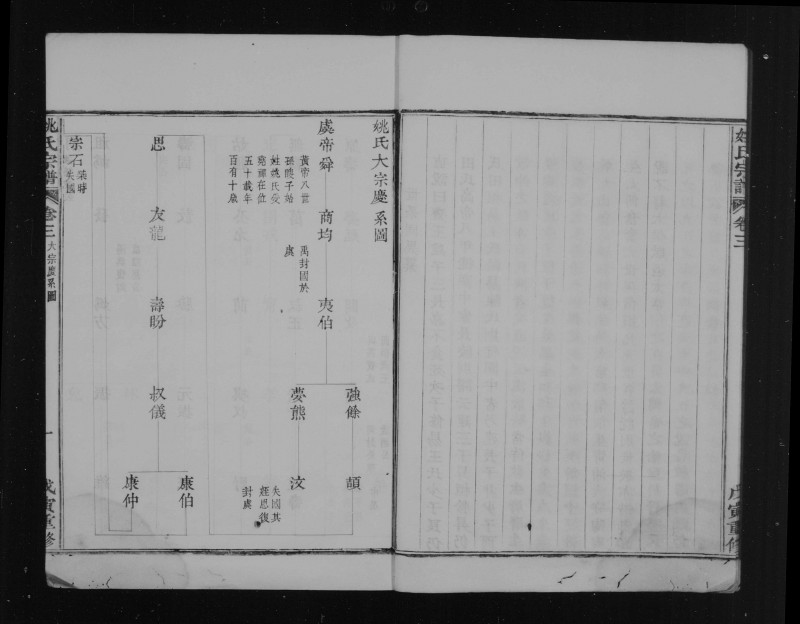 姚氏宗譜
卷三
戊寅重修
姚氏大宗慶系圖
虞帝舜
黃帝八世
孫瞍子始
姓姚氏受
堯禪在位
五十載年
百有十歲
商均
禹封國於
虞
夷伯
強餘
頡
夢熊
汶
失國其
姪思復
封虞
思
友龍
壽盼
叔儀
康伯
康仲
宗石
桀時
失國
姚氏宗譜
卷三
大宗慶系圖
一
戊寅重修